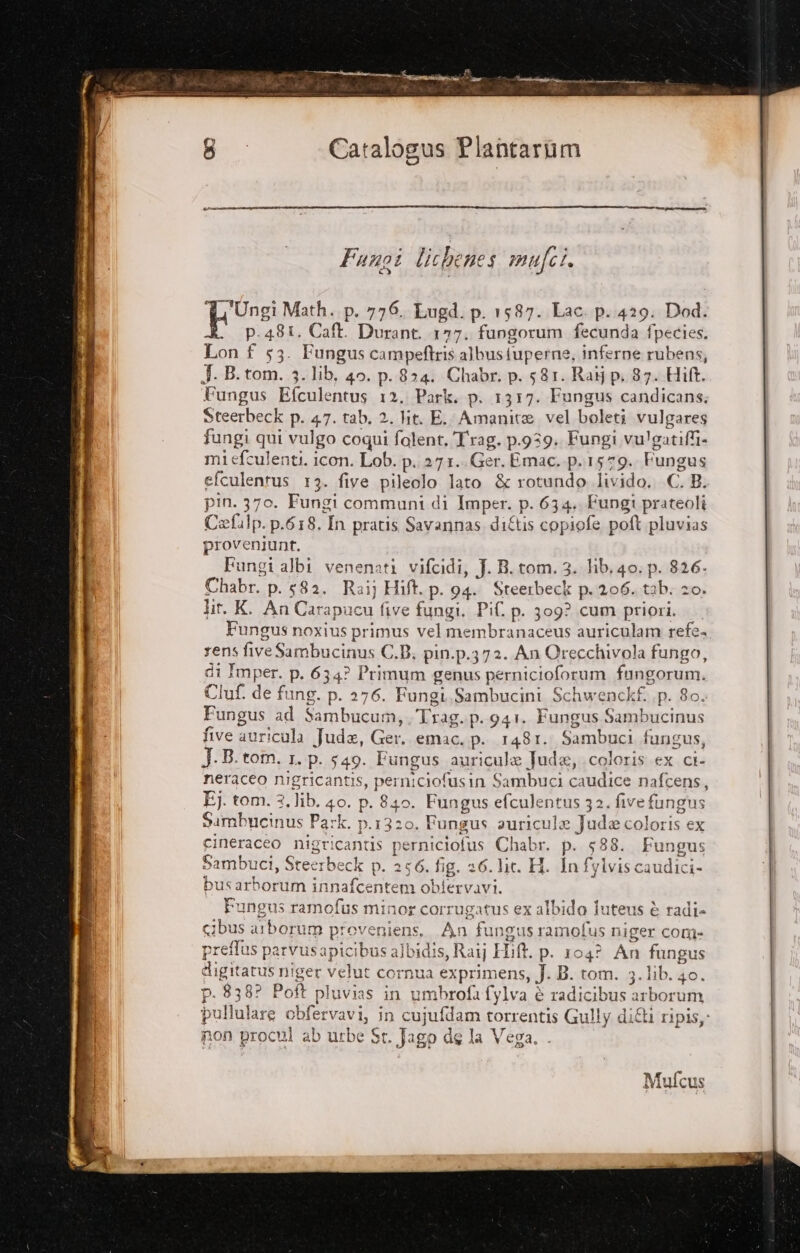 8 Catalogus Plantarum
Fungi lichenes muſci.
FUngi Math. p. 776. Lugd. p. 1587. Lac. p. 429. Dod.
p. 481. Caſt. Durant. 177. fungorum fecunda ſpecies.
Lon f 53. Fungus campeſtris albus ſuperne, inferne rubens,
J. B. tom. 3. lib. 40. p. 824. Chabr. p. 581. Raij p. 87. Hiſt.
Fungus Eſculentus 12. Park. p. 1317. Fungus candicans.
Steerbeck p. 47. tab. 2. lit. E. Amanitæ vel boleti vulgares
fungi qui vulgo coqui ſolent. Trag. p. 939. Fungi vulgatiſſi-
mi eſculenti. icon. Lob. p. 271. Ger. Emac. p. 1579. Fungus
eſculentus 13. ſive pileolo lato & rotundo livido. C. B.
pin. 370. Fungi communi di Imper. p. 634. Fungi prateoli
Cæſalp. p. 618. In pratis Savannas dictis copioſe poſt pluvias
proveniunt.
Fungi albi venenati viſcidi, J. B. tom. 3. lib. 40. p. 826.
Chabr. p. 582. Raij Hiſt. p. 94. Steerbeck p. 206. tab. 20.
lit. K. An Carapucu ſive fungi. Piſ. p. 309? cum priori.
Fungus noxius primus vel membranaceus auriculam refe-
rens ſive Sambucinus C.B. pin. p. 372. An Orecchivola fungo,
di Imper. p. 634? Primum genus pernicioſorum fungorum.
Cluſ. de fung. p. 276. Fungi Sambucini Schwenckf. p. 80.
Fungus ad Sambucum, Trag. p. 941. Fungus Sambucinus
ſive auricula Judæ, Ger. emac. p. 1481. Sambuci fungus,
J. B. tom. 1. p. 549. Fungus auriculæ Judæ, coloris ex ci-
neraceo nigricantis, pernicioſus in Sambuci caudice naſcens,
Ej. tom. 3. lib. 40. p. 840. Fungus eſculentus 32. ſive fungus
Sambucinus Park. p. 1320. Fungus auriculæ Judæ coloris ex
cineraceo nigricantis pernicioſus Chabr. p. 588. Fungus
Sambuci, Steerbeck p. 256. fig. 26. lit. H. In ſylvis caudici-
bus arborum innaſcentem obſervavi.
Fungus ramoſus minor corrugatus ex albido luteus è radi-
cibus arborum proveniens, An fungus ramoſus niger com-
preſſus parvus apicibus albidis, Raij Hiſt. p. 104? An fungus
digitatus niger velut cornua exprimens, J. B. tom. 3. lib. 40.
p. 838? Poſt pluvias in umbroſa ſylva è radicibus arborum
pullulare obſervavi, in cujuſdam torrentis Gully dicti ripis,
non procul ab urbe St. Jago de la Vega.
Muſcus